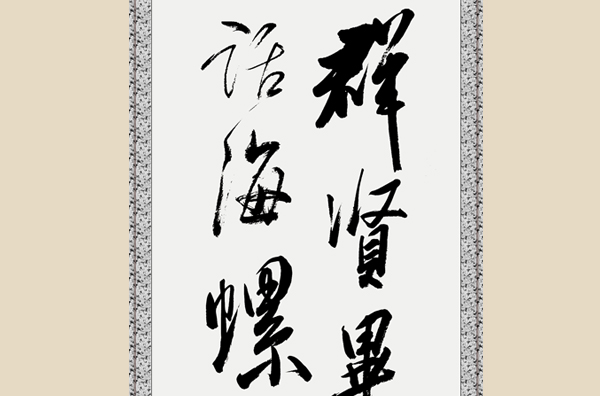 群贤畢
话海螺